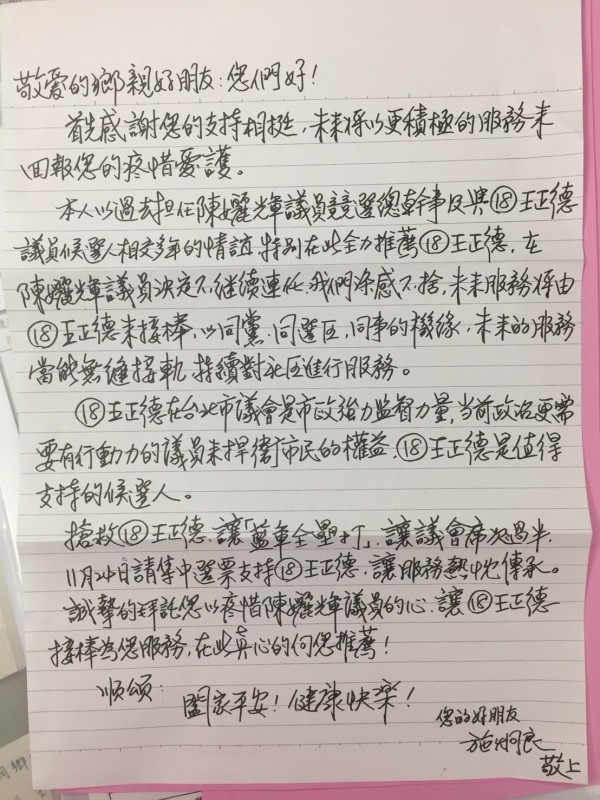 敬愛的鄉親好朋友：您們好！
首先感謝您的支持相挺，未來將以更積極的服務來
回報您的疼惜愛護。
本人以過去担任陳孋輝議員競選總幹事及與⑱王正德
議員候選人相交多年的情誼，特別在此全力推薦⑱王正德，在
陳孋輝議員決定不继續連任，我們深感不捨，未來服務將由
⑱王正德來接棒，以同黨、同選区、同事的機緣，未來的服務
當能無縫接軌，持續對社区進行服務。
⑱王正德在台北市議會是市政強力監督力量，當前政治更需
要有行動力的議員來捍衛市民的權益，⑱王正德是值得
支持的候選人。
搶救⑱王正德，讓「藍軍全壘打」，讓議會席次過半，
11月24日請集中選票支持⑱王正德，讓服務熱忱傳承。
誠摯的拜託您以疼惜陳孋輝議員的心，讓⑱王正德
接棒為您服務，在此真心的向您推薦！
順頌：
闔家平安！健康快樂！
您的好朋友
施炳良
敬上